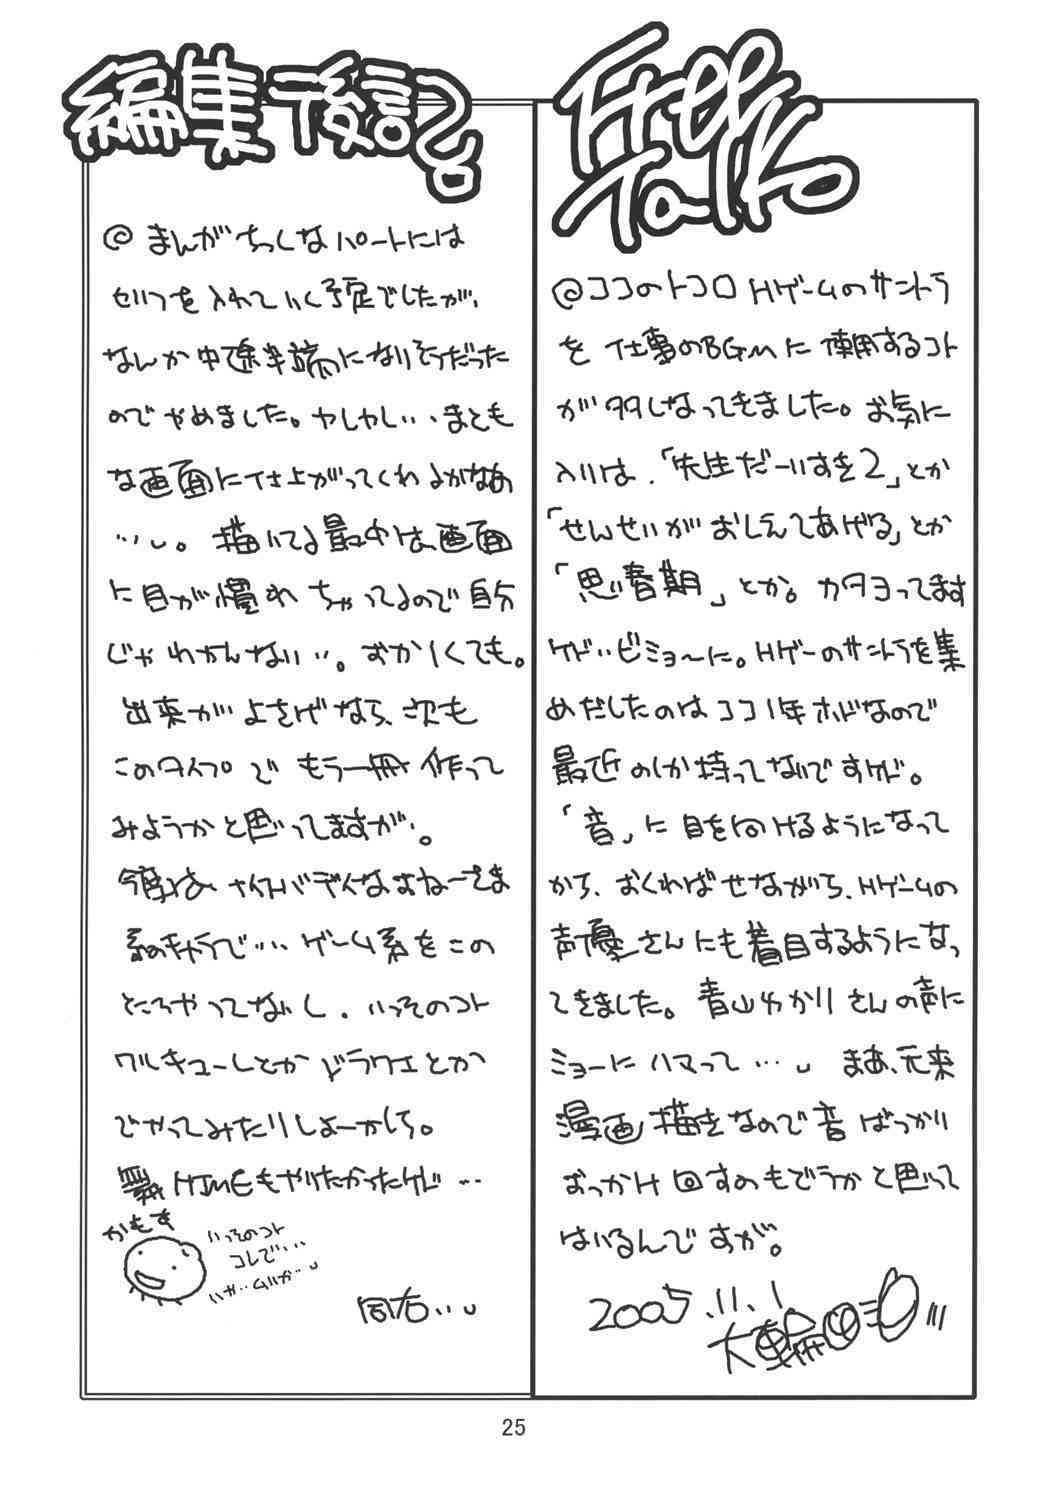 Free
Talk。
@ココのトコロHゲームのサントラ
を仕事のBGMに使用するコト
が多しなってきました。お気に
入りは、「先生だーいすき2」とか
「せんせいがおしえてあげる」とか
「思春期」とか。カタヨってます
ケド…ビミョ〜に。Hゲーのサントラを集
めだしたのはココ1年ホドなので
最近のしか持ってないですケド。
「音」に目を向けるようになって
から、おくればせながら、Hゲームの
声優さんにも着目するようになっ
てきました。青山ゆかりさんの声に
ミョーにハマって…。まあ、元来
漫画描きなので音ばっかり
おっかけ回すのもどうかと思って
はいるんですが。
2005.11.1
編集後記。
@まんがちっくなパートには
セリフを入れていく予定でしたが、
なんか中途半端になりそうだった
のでやめました。しかし…まとも
な画面に仕上がってくれるかなあ
…。描いてる最中は、画面
に目が慣れちゃってるので自分
じゃわかんない…。おかしくても。
出来がよさげなら、次も
このタイプでもう一冊作って
みようかと思ってますが…。
今度は、ナイスバディなおねーさま
系のキャラで…ゲーム系をこの
ところやってないし、いっそのコト
ワルキューレとかドラクエとか
でやってみたりしよーかしら。
舞HiMEもやりたかったけど…
かもす
いっそのコト
コレで…
いや…ムリか…
同右…
25